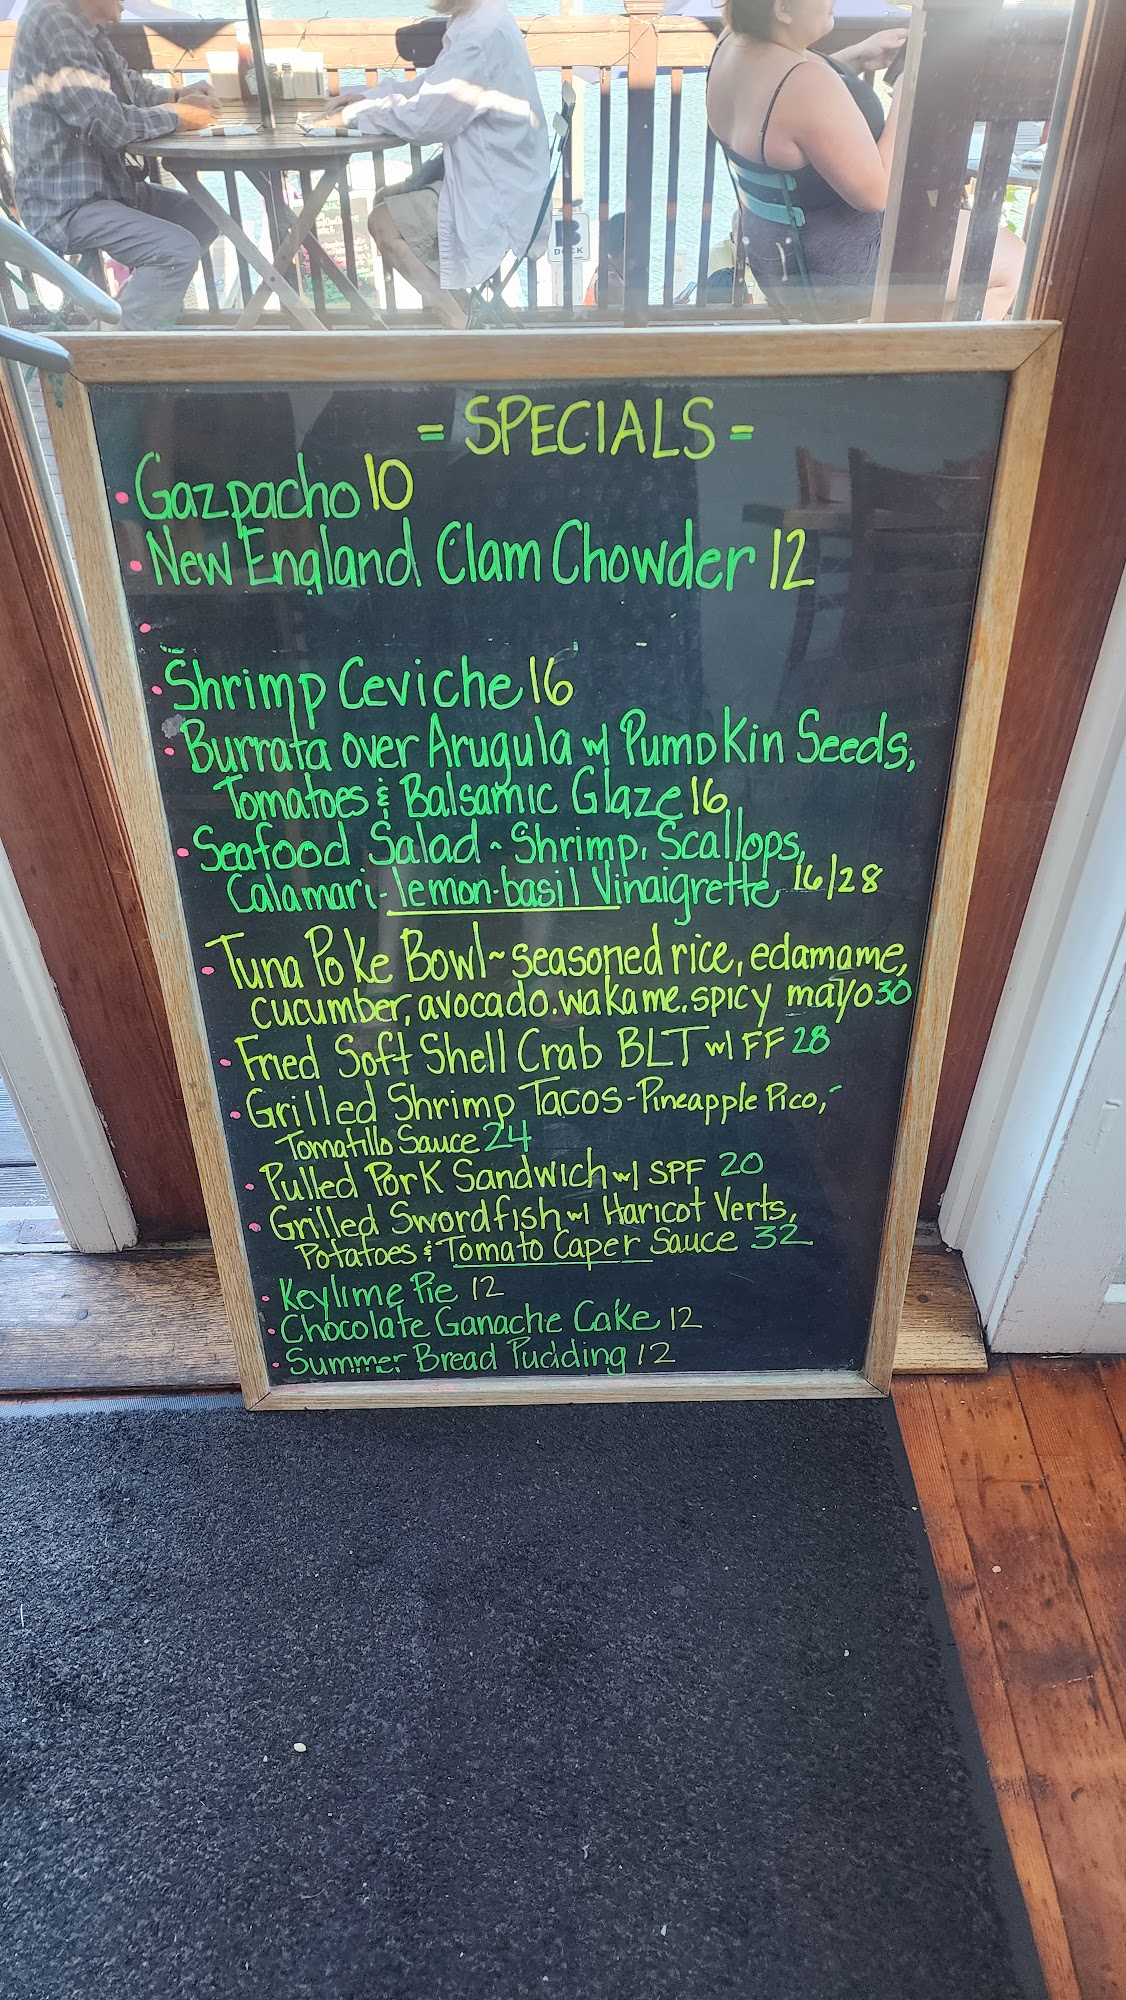 B
DOCK
= SPECIALS =
• Gazpacho 10
• New England Clam Chowder 12
•
• Shrimp Ceviche 16
• Burrata over Arugula w/ Pumpkin Seeds,
Tomatoes & Balsamic Glaze 16
• Seafood Salad ~ Shrimp, Scallops,
Calamari - lemon-basil Vinaigrette 16/28
• Tuna Poke Bowl ~ seasoned rice, edamame,
cucumber, avocado. wakame. spicy mayo 30
• Fried Soft Shell Crab BLT w/ FF 28
• Grilled Shrimp Tacos - Pineapple Pico,
Tomatillo Sauce 24
• Pulled Pork Sandwich w/ SPF 20
• Grilled Swordfish w/ Haricot Verts,
Potatoes & Tomato Caper Sauce 32
• Keylime Pie 12
• Chocolate Ganache Cake 12
• Summer Bread Pudding 12